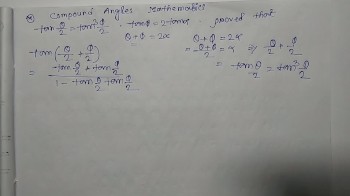 Compound Angles Mathematics
tan θ/2 = tan³ φ/2 tanθ = 2 tanα proved that
θ + φ = 2α
θ + φ = 2α
= θ+φ/2 = α ⇒ θ/2 + φ/2
tan(θ/2 + φ/2)
= tan θ/2 + tan φ/2 / 1 - tan θ/2 tan φ/2
= tan θ/2 = tan³ φ/2